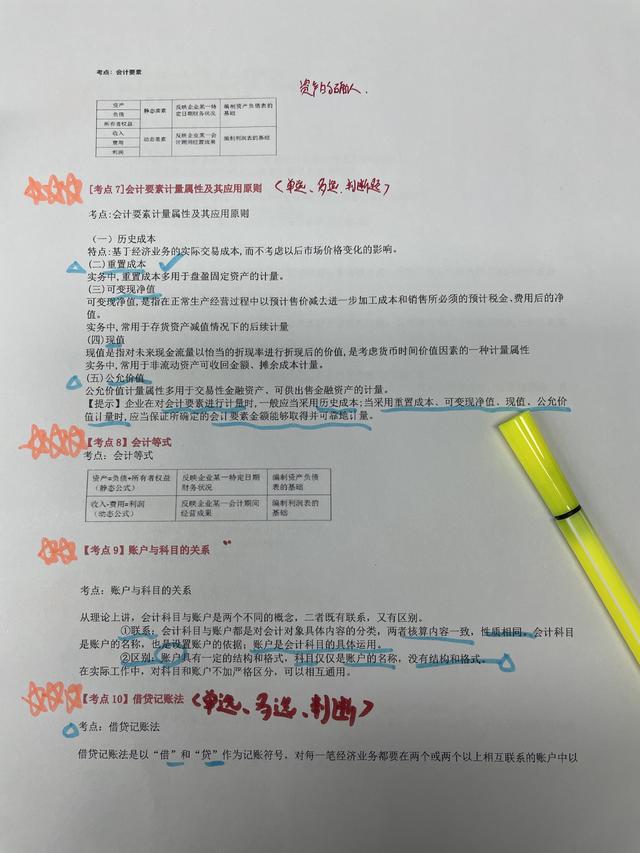 考点：会计要素
资产的确认.
资产 静态要素 反映企业某一特定日期财务状况 编制资产负债表的基础
负债
所有者权益
收入 动态要素 反映企业某一会计期间经营成果 编制利润表的基础
费用
利润
[考点 7]会计要素计量属性及其应用原则 (单选、多选、判断题)
考点:会计要素计量属性及其应用原则
（一）历史成本
特点:基于经济业务的实际交易成本,而不考虑以后市场价格变化的影响。
(二)重置成本
实务中,重置成本多用于盘盈固定资产的计量。
(三)可变现净值
可变现净值,是指在正常生产经营过程中以预计售价减去进一步加工成本和销售所必须的预计税金、费用后的净
值。
实务中,常用于存货资产减值情况下的后续计量
(四)现值
现值是指对未来现金流量以恰当的折现率进行折现后的价值,是考虑货币时间价值因素的一种计量属性
实务中,常用于非流动资产可收回金额、摊余成本计量。
(五)公允价值
公允价值计量属性多用于交易性金融资产、可供出售金融资产的计量。
【提示】企业在对会计要素进行计量时,一般应当采用历史成本;当采用重置成本、可变现净值、现值、公允价
值计量时,应当保证所确定的会计要素金额能够取得并可靠地计量。
【考点 8】会计等式
考点：会计等式
资产=负债+所有者权益 反映企业某一特定日期 编制资产负债
（静态公式） 财务状况 表的基础
收入-费用=利润 反映企业某一会计期间 编制利润表的
（动态公式） 经营成果 基础
【考点 9】账户与科目的关系
考点：账户与科目的关系
从理论上讲，会计科目与账户是两个不同的概念，二者既有联系，又有区别。
①联系：会计科目与账户都是对会计对象具体内容的分类，两者核算内容一致，性质相同。会计科目
是账户的名称，也是设置账户的依据；账户是会计科目的具体运用。
②区别：账户具有一定的结构和格式，科目仅仅是账户的名称，没有结构和格式。
在实际工作中，对科目和账户不加严格区分，可以相互通用。
【考点 10】借贷记账法 (单选、多选、判断)
考点：借贷记账法
借贷记账法是以“借”和“贷”作为记账符号，对每一笔经济业务都要在两个或两个以上相互联系的账户中以